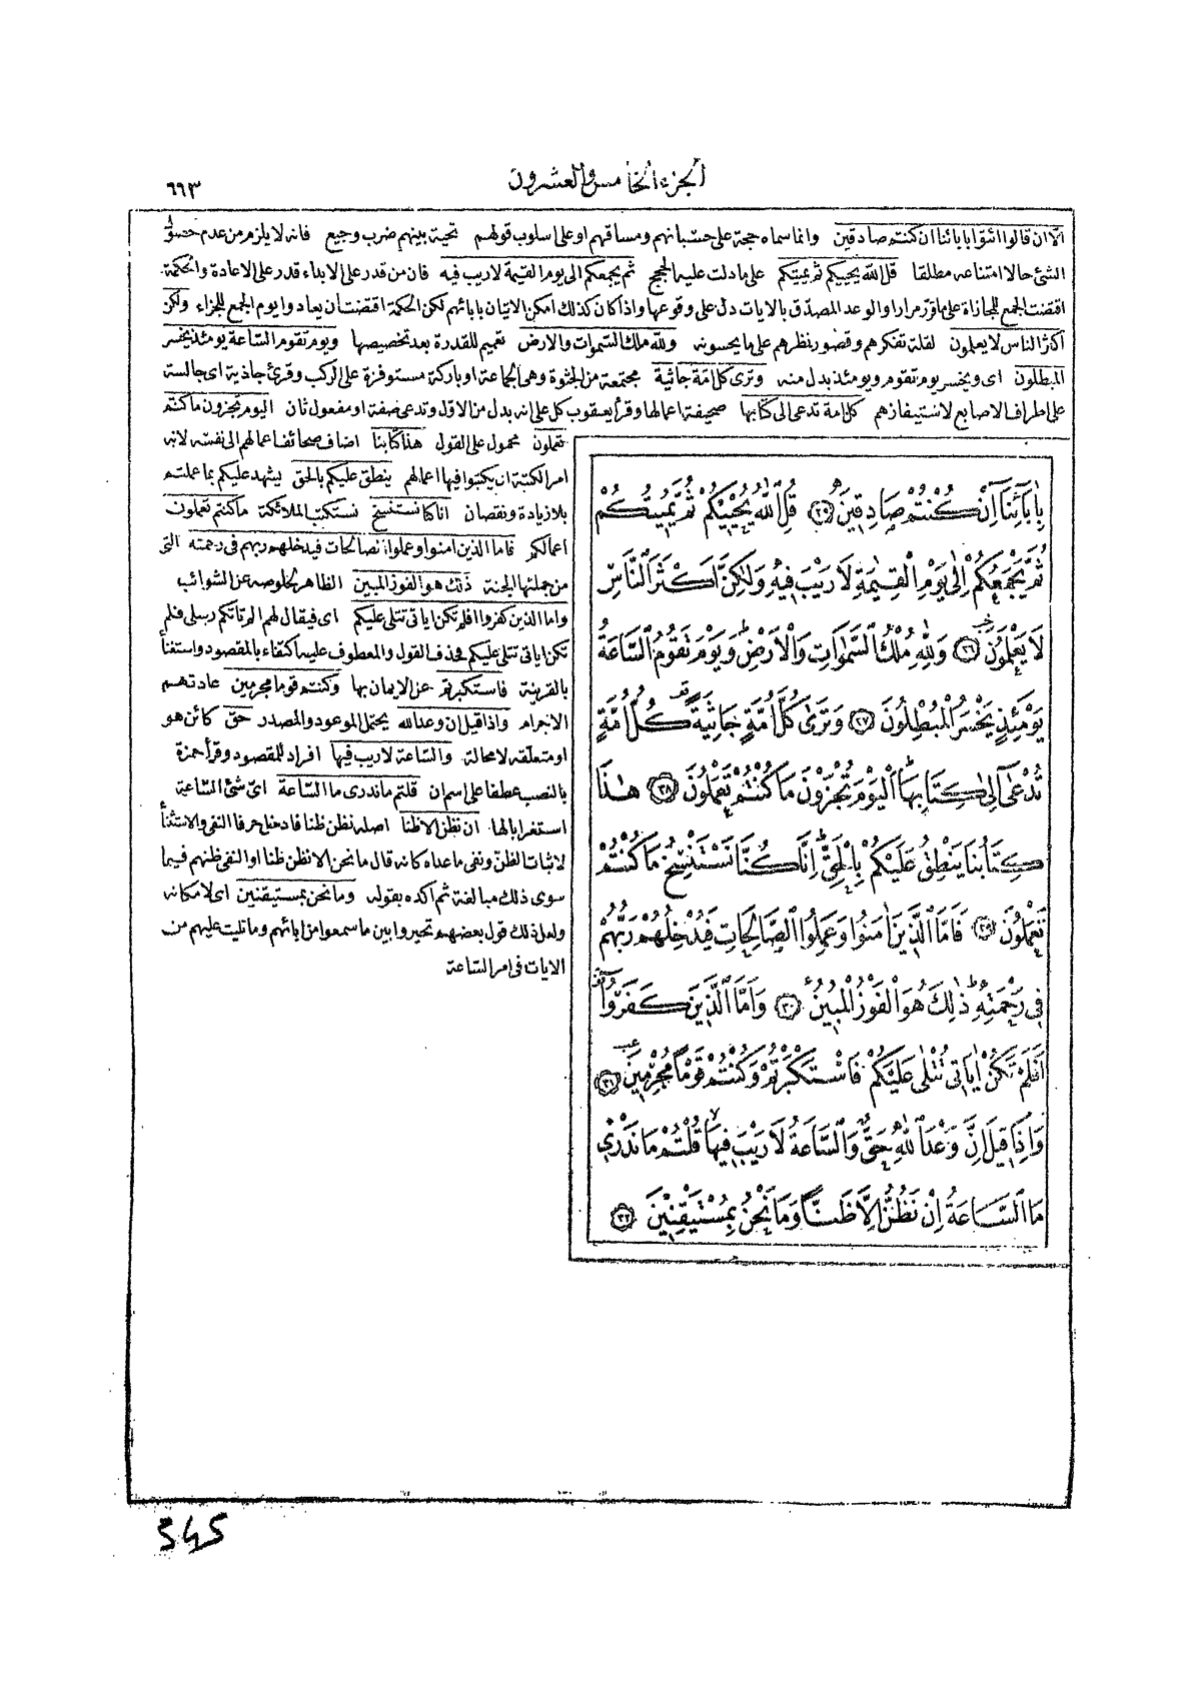 الجزء الخامس والعشرون
٦٦٣
الا ان قالوا ائتوا بابائنا ان كنتم صادقين وانما سماه حجة على حسبانهم ومساقهم او على اسلوب قولهم تحية بينهم ضرب وجيع فانه لا يلزم من عدم حصول
الشئ حالا امتناعه مطلقا قل الله يحييكم ثم يميتكم على ما دلت عليه الحجج ثم يجمعكم الى يوم القيمة لا ريب فيه فان من قدر على الابداء قدر على الاعادة والحكمة
اقتضت الجمع للمجازاة على ما قرر مرارا والوعد المصدق بالايات دل على وقوعها واذا كان كذلك امكن الاتيان بابائهم لكن الحكمة اقتضت ان يعادوا يوم الجمع للجزاء ولكن
اكثر الناس لا يعلمون لقلة تفكرهم وقصور نظرهم على ما يحسونه ولله ملك السموات والارض تعميم للقدرة بعد تخصيصها ويوم تقوم الساعة يومئذ يخسر
المبطلون اى ويخسر يوم تقوم ويومئذ بدل منه وترى كل امة جاثية مجتمعة من الجثوة وهى الجماعة او باركة مستوفزة على الركب وقرئ جاذية اى جالسة
على اطراف الاصابع لاستيفازهم كل امة تدعى الى كتابها صحيفة اعمالها وقرأ يعقوب كل على انه بدل من الاول وتدعى صفة او مفعول ثان اليوم تجزون ما كنتم
تعملون محمول على القول هذا كتابنا اضاف صحائف اعمالهم الى نفسه لانه
امر الكتبة ان يكتبوا فيها اعمالهم ينطق عليكم بالحق يشهد عليكم بما عملتم
بلا زيادة ونقصان انا كنا نستنسخ نستكتب الملائكة ما كنتم تعملون
اعمالكم فاما الذين امنوا وعملوا الصالحات فيدخلهم ربهم فى رحمته التى
من جملتها الجنة ذلك هو الفوز المبين الظاهر لخلوصه عن الشوائب
واما الذين كفروا افلم تكن اياتى تتلى عليكم اى فيقال لهم الم تأتكم رسلى فلم
تكن اياتى تتلى عليكم فحذف القول والمعطوف عليه اكتفاء بالمقصود واستغنأ
بالقرينة فاستكبرتم عن الايمان بها وكنتم قوما مجرمين عادتهم
الاجرام واذا قيل ان وعد الله يحتمل الموعود والمصدر حق كائن هو
او متعلقه لا محالة والساعة لا ريب فيها افراد للمقصود وقرأ حمزة
بالنصب عطفا على اسم ان قلتم ما ندرى ما الساعة اى شئ الساعة
استغرابا لها ان نظن الا ظنا اصله نظن ظنا فادخل حرفا النفى والاستثنأ
لاثبات الظن ونفى ما عداه كانه قال ما نحن الا نظن ظنا او لنفى ظنهم فيما
سوى ذلك مبالغة ثم اكده بقوله وما نحن بمستيقنين اى لامكانه
ولعل ذلك قول بعضهم تحيروا بين ما سمعوا من ابائهم وما تليت عليهم من
الايات فى امر الساعة
بِاٰبَٓائِنَٓا اِنْ كُنْتُمْ صَادِقِينَ ٢٥ قُلِ اللّٰهُ يُحْيِيكُمْ ثُمَّ يُمِيتُكُمْ
ثُمَّ يَجْمَعُكُمْ اِلٰى يَوْمِ الْقِيٰمَةِ لَا رَيْبَ فِيهِ وَلٰكِنَّ اَكْثَرَ النَّاسِ
لَا يَعْلَمُونَ ٢٦ وَلِلّٰهِ مُلْكُ السَّمٰوَاتِ وَالْاَرْضِ وَيَوْمَ تَقُومُ السَّاعَةُ
يَوْمَئِذٍ يَخْسَرُ الْمُبْطِلُونَ ٢٧ وَتَرٰى كُلَّ اُمَّةٍ جَاثِيَةً كُلُّ اُمَّةٍ
تُدْعٰٓى اِلٰى كِتَابِهَا اَلْيَوْمَ تُجْزَوْنَ مَا كُنْتُمْ تَعْمَلُونَ ٢٨ هٰذَا
كِتَابُنَا يَنْطِقُ عَلَيْكُمْ بِالْحَقِّ اِنَّا كُنَّا نَسْتَنْسِخُ مَا كُنْتُمْ
تَعْمَلُونَ ٢٩ فَاَمَّا الَّذِينَ اٰمَنُوا وَعَمِلُوا الصَّالِحَاتِ فَيُدْخِلُهُمْ رَبُّهُمْ
فِى رَحْمَتِهِ ذٰلِكَ هُوَ الْفَوْزُ الْمُبِينُ ٣٠ وَاَمَّا الَّذِينَ كَفَرُوا
اَفَلَمْ تَكُنْ اٰيَاتِى تُتْلٰى عَلَيْكُمْ فَاسْتَكْبَرْتُمْ وَكُنْتُمْ قَوْمًا مُجْرِمِينَ ٣١
وَاِذَا قِيلَ اِنَّ وَعْدَ اللّٰهِ حَقٌّ وَالسَّاعَةُ لَا رَيْبَ فِيهَا قُلْتُمْ مَا نَدْرِى
مَا السَّاعَةُ اِنْ نَظُنُّ اِلَّا ظَنًّا وَمَا نَحْنُ بِمُسْتَيْقِنِينَ ٣٢
545